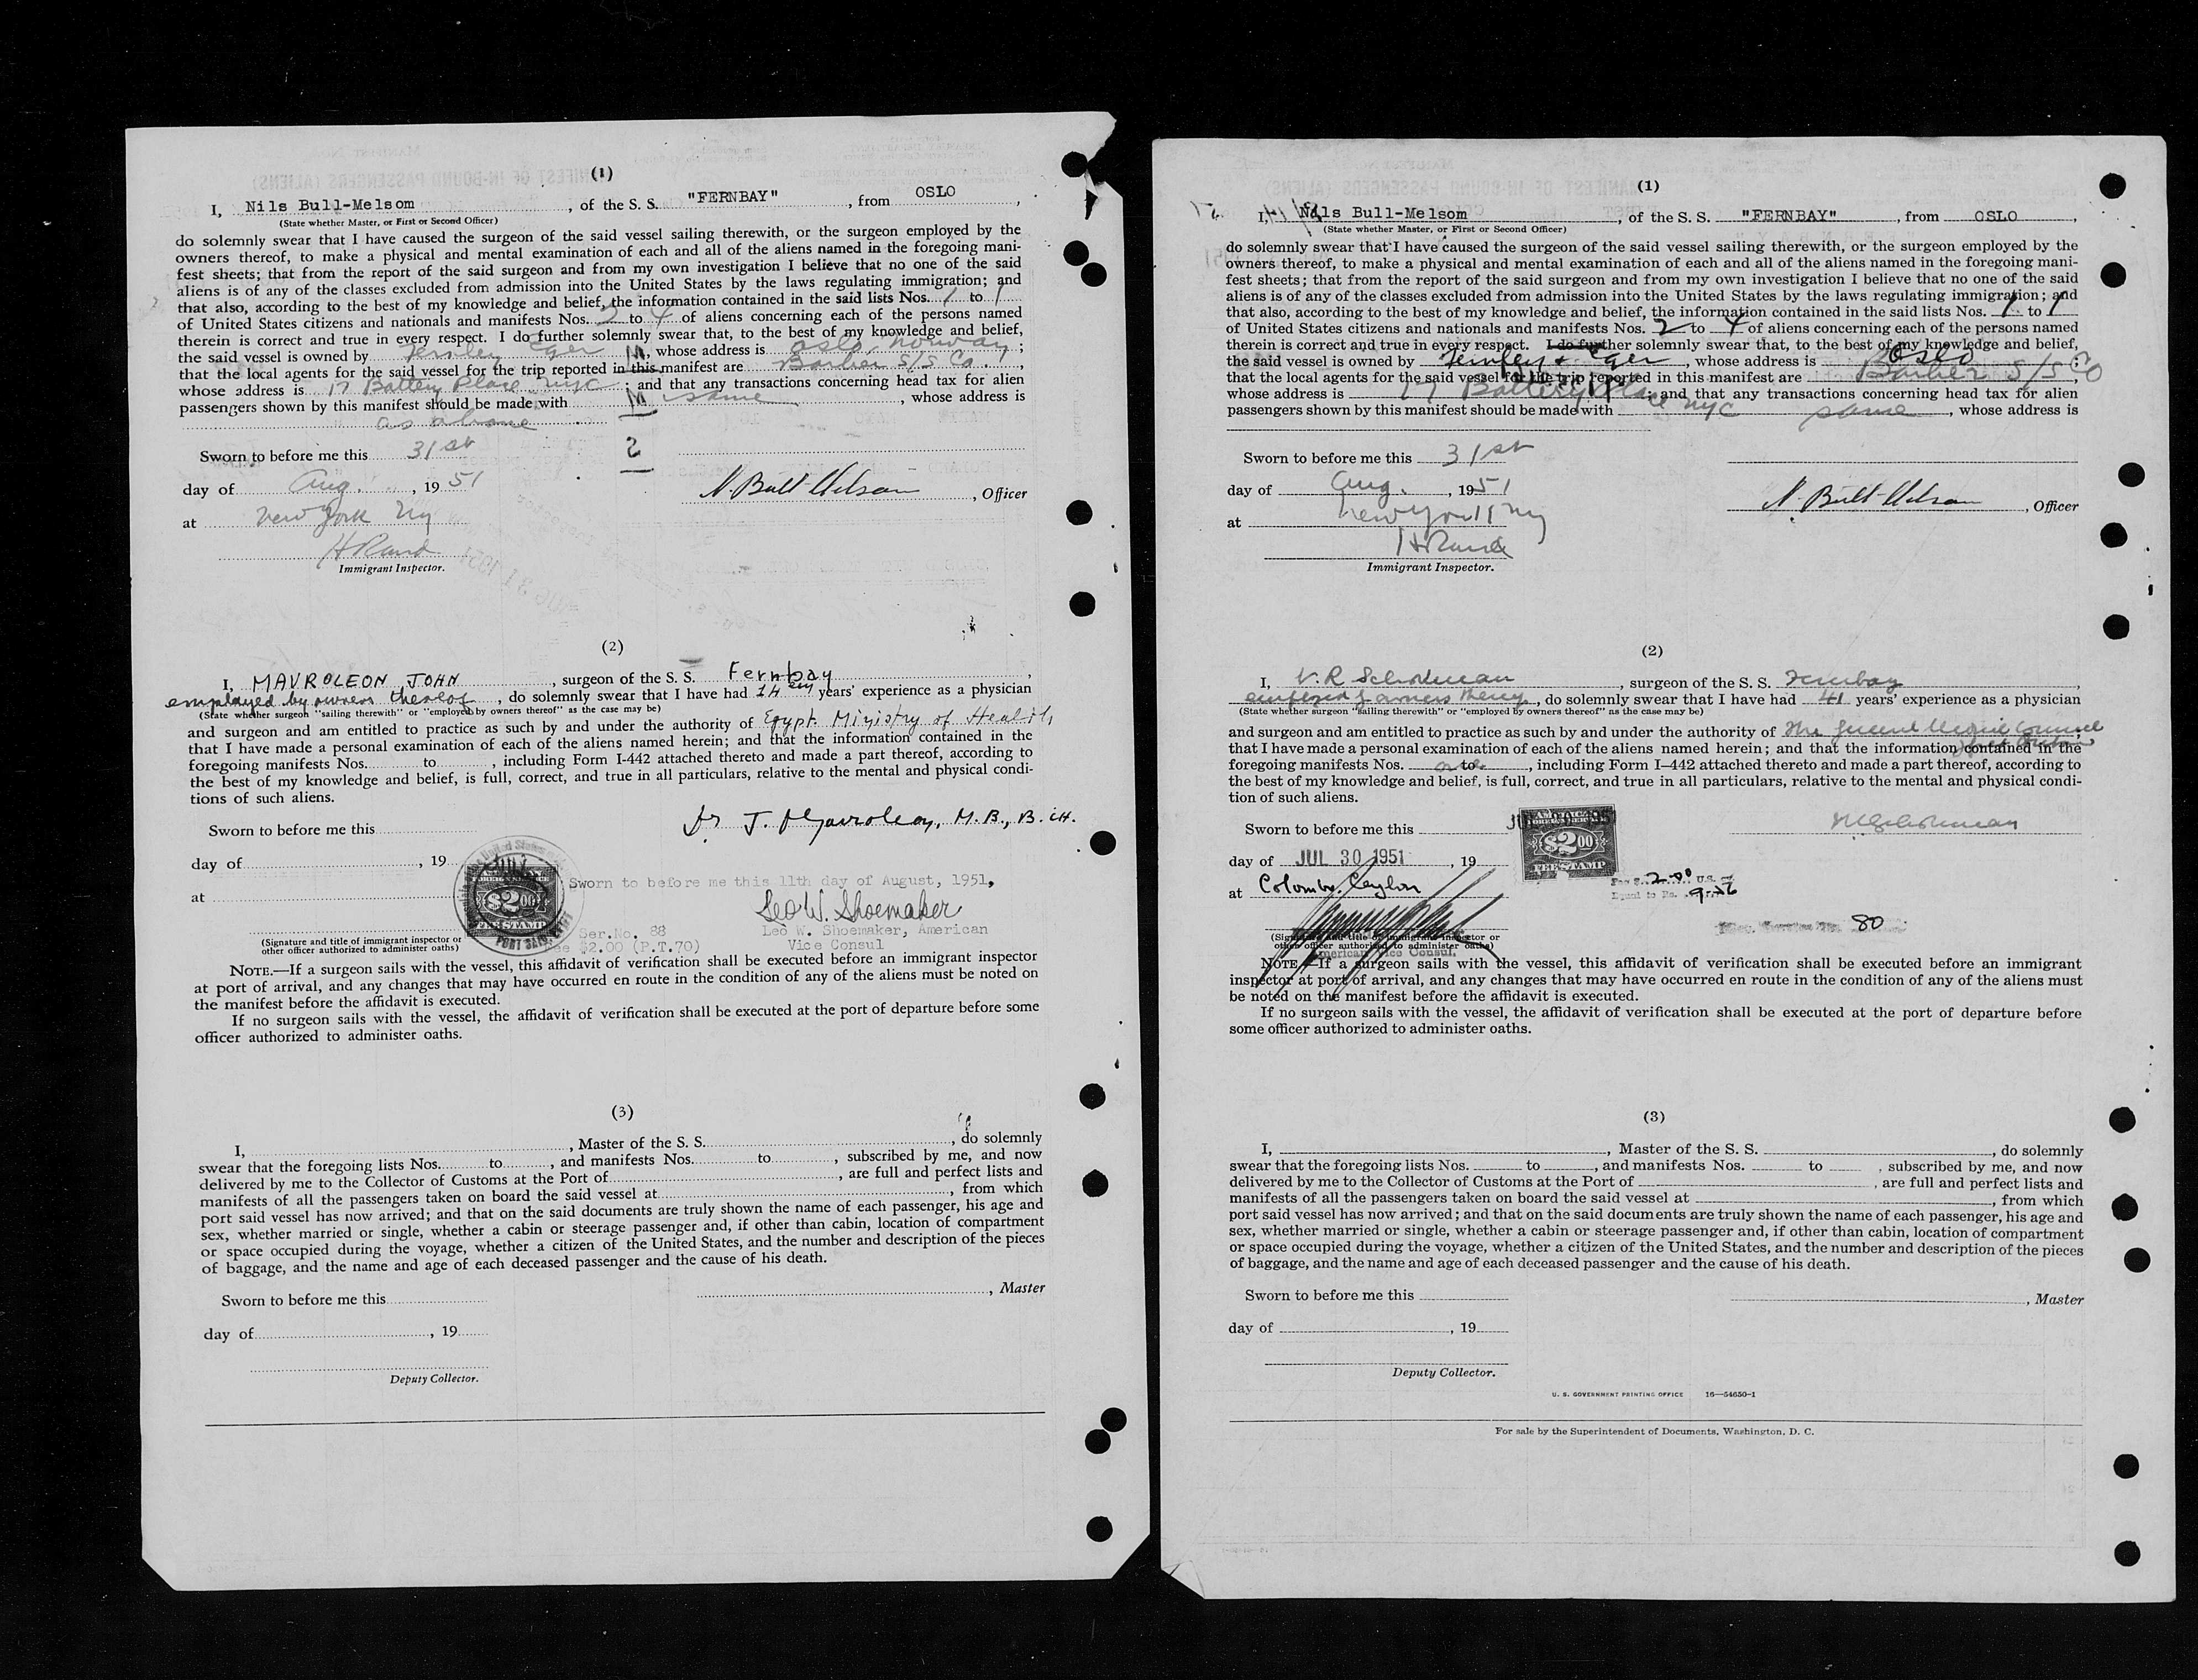 (1)
I, Nils Bull-Melsom, of the S. S. "FERNBAY", from OSLO,
(State whether Master, or First or Second Officer)
do solemnly swear that I have caused the surgeon of the said vessel sailing therewith, or the surgeon employed by the
owners thereof, to make a physical and mental examination of each and all of the aliens named in the foregoing mani-
fest sheets; that from the report of the said surgeon and from my own investigation I believe that no one of the said
aliens is of any of the classes excluded from admission into the United States by the laws regulating immigration; and
that also, according to the best of my knowledge and belief, the information contained in the said lists Nos. 1 to 1
of United States citizens and nationals and manifests Nos. 2 to 4 of aliens concerning each of the persons named
therein is correct and true in every respect. I do further solemnly swear that, to the best of my knowledge and belief,
the said vessel is owned by Fernley Eger, whose address is Oslo, Norway;
that the local agents for the said vessel for the trip reported in this manifest are Barber S/S Co.,
whose address is 17 Battery Place nyc; and that any transactions concerning head tax for alien
passengers shown by this manifest should be made with same, whose address is
as above
2
Sworn to before me this 31st
day of Aug., 1951
N. Bull-Melsom, Officer
at New York Ny
HRand
Immigrant Inspector.
(2)
I, MAVROLEON JOHN, surgeon of the S. S. Fernbay,
employed by owners thereof, do solemnly swear that I have had 14 years' experience as a physician
(State whether surgeon "sailing therewith" or "employed by owners thereof" as the case may be)
and surgeon and am entitled to practice as such by and under the authority of Egypt. Ministry of Health,
that I have made a personal examination of each of the aliens named herein; and that the information contained in the
foregoing manifests Nos. to , including Form I-442 attached thereto and made a part thereof, according to
the best of my knowledge and belief, is full, correct, and true in all particulars, relative to the mental and physical condi-
tions of such aliens.
Dr J. Mavroleon, M.B., B.ch.
Sworn to before me this
day of , 19
$2.00
FEE STAMP
PORT SAID, EGYPT
Sworn to before me this 11th day of August, 1951,
at
Leo W. Shoemaker
Ser.No. 88
Leo W. Shoemaker, American
Fee $2.00 (P.T.70)
Vice Consul
(Signature and title of immigrant inspector or
other officer authorized to administer oaths)
NOTE.—If a surgeon sails with the vessel, this affidavit of verification shall be executed before an immigrant inspector
at port of arrival, and any changes that may have occurred en route in the condition of any of the aliens must be noted on
the manifest before the affidavit is executed.
If no surgeon sails with the vessel, the affidavit of verification shall be executed at the port of departure before some
officer authorized to administer oaths.
(3)
I, , Master of the S. S. , do solemnly
swear that the foregoing lists Nos. to , and manifests Nos. to , subscribed by me, and now
delivered by me to the Collector of Customs at the Port of , are full and perfect lists and
manifests of all the passengers taken on board the said vessel at , from which
port said vessel has now arrived; and that on the said documents are truly shown the name of each passenger, his age and
sex, whether married or single, whether a cabin or steerage passenger and, if other than cabin, location of compartment
or space occupied during the voyage, whether a citizen of the United States, and the number and description of the pieces
of baggage, and the name and age of each deceased passenger and the cause of his death.
, Master
Sworn to before me this
day of , 19
Deputy Collector.
(1)
I, Nils Bull-Melsom, of the S. S. "FERNBAY", from OSLO,
(State whether Master, or First or Second Officer)
do solemnly swear that I have caused the surgeon of the said vessel sailing therewith, or the surgeon employed by the
owners thereof, to make a physical and mental examination of each and all of the aliens named in the foregoing mani-
fest sheets; that from the report of the said surgeon and from my own investigation I believe that no one of the said
aliens is of any of the classes excluded from admission into the United States by the laws regulating immigration; and
that also, according to the best of my knowledge and belief, the information contained in the said lists Nos. 1 to 1
of United States citizens and nationals and manifests Nos. 2 to 4 of aliens concerning each of the persons named
therein is correct and true in every respect. I do further solemnly swear that, to the best of my knowledge and belief,
the said vessel is owned by Fernley & Eger, whose address is Oslo;
that the local agents for the said vessel for the trip reported in this manifest are Barber S/S Co,
whose address is 17 Battery Place nyc; and that any transactions concerning head tax for alien
passengers shown by this manifest should be made with same, whose address is
Sworn to before me this 31st
day of Aug., 1951
N. Bull-Melsom, Officer
at New York ny
HRand
Immigrant Inspector.
(2)
I, V. R Schokman, surgeon of the S. S. Fernbay,
employed by owners thereof, do solemnly swear that I have had 41 years' experience as a physician
(State whether surgeon "sailing therewith" or "employed by owners thereof" as the case may be)
and surgeon and am entitled to practice as such by and under the authority of The General Medical Council
that I have made a personal examination of each of the aliens named herein; and that the information contained in the
foregoing manifests Nos. to , including Form I-442 attached thereto and made a part thereof, according to
the best of my knowledge and belief, is full, correct, and true in all particulars, relative to the mental and physical condi-
tion of such aliens.
Sworn to before me this
$2.00
FEE STAMP
day of JUL 30 1951, 19
Fee $ 2.00 U.S.
at Colombo, Ceylon
Equal to Rs. 9.56
80
(Signature and title of immigrant inspector or
other officer authorized to administer oaths)
American Vice Consul.
NOTE.—If a surgeon sails with the vessel, this affidavit of verification shall be executed before an immigrant
inspector at port of arrival, and any changes that may have occurred en route in the condition of any of the aliens must
be noted on the manifest before the affidavit is executed.
If no surgeon sails with the vessel, the affidavit of verification shall be executed at the port of departure before
some officer authorized to administer oaths.
(3)
I, , Master of the S. S. , do solemnly
swear that the foregoing lists Nos. to , and manifests Nos. to , subscribed by me, and now
delivered by me to the Collector of Customs at the Port of , are full and perfect lists and
manifests of all the passengers taken on board the said vessel at , from which
port said vessel has now arrived; and that on the said documents are truly shown the name of each passenger, his age and
sex, whether married or single, whether a cabin or steerage passenger and, if other than cabin, location of compartment
or space occupied during the voyage, whether a citizen of the United States, and the number and description of the pieces
of baggage, and the name and age of each deceased passenger and the cause of his death.
Sworn to before me this
, Master
day of , 19
Deputy Collector.
U. S. GOVERNMENT PRINTING OFFICE 16—54650-1
For sale by the Superintendent of Documents, Washington, D. C.